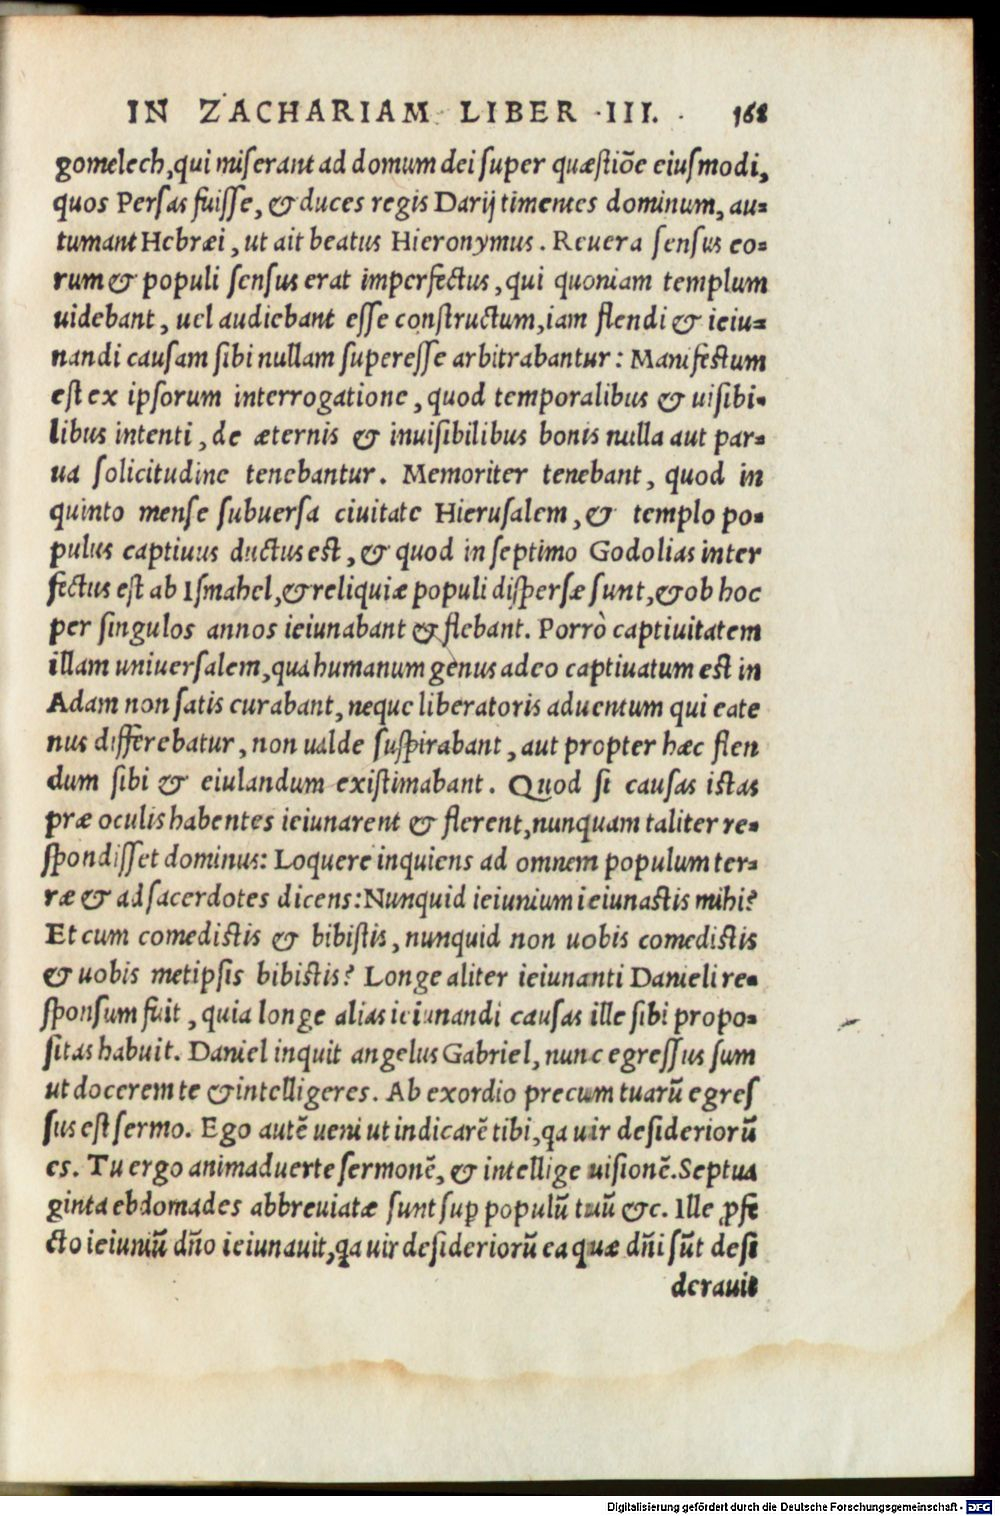 IN ZACHARIAM LIBER ·III. · 168
gomelech, qui miserant ad domum dei super quæstiõe eiusmodi,
quos Persas fuisse, & duces regis Darij timentes dominum, au=
tumant Hebræi, ut ait beatus Hieronymus. Reuera sensus eo=
rum & populi sensus erat imperfectus, qui quoniam templum
uidebant, uel audiebant esse constructum, iam flendi & ieiu=
nandi causam sibi nullam superesse arbitrabantur: Manifestum
est ex ipsorum interrogatione, quod temporalibus & uisibi=
libus intenti, de æternis & inuisibilibus bonis nulla aut par=
ua solicitudine tenebantur. Memoriter tenebant, quod in
quinto mense subuersa ciuitate Hierusalem, & templo po=
pulus captiuus ductus est, & quod in septimo Godolias inter
fectus est ab Ismahel, & reliquiæ populi dispersæ sunt, & ob hoc
per singulos annos ieiunabant & flebant. Porrò captiuitatem
illam uniuersalem, qua humanum genus adeo captiuatum est in
Adam non satis curabant, neque liberatoris aduentum qui eate
nus differebatur, non ualde suspirabant, aut propter hæc flen
dum sibi & eiulandum existimabant. Quod si causas istas
præ oculis habentes ieiunarent & flerent, nunquam taliter re=
spondisset dominus: Loquere inquiens ad omnem populum ter=
ræ & ad sacerdotes dicens: Nunquid ieiunium ieiunastis mihi?
Et cum comedistis & bibistis, nunquid non uobis comedistis
& uobis metipsis bibistis? Longe aliter ieiunanti Danieli re=
sponsum fuit, quia longe alias ieiunandi causas ille sibi propo=
sitas habuit. Daniel inquit angelus Gabriel, nunc egressus sum
ut docerem te & intelligeres. Ab exordio precum tuarũ egres
sus est sermo. Ego autẽ ueni ut indicarẽ tibi, qa uir desideriorũ
es. Tu ergo animaduerte sermonẽ, & intellige uisionẽ. Septua
ginta ebdomades abbreuiatæ sunt sup populũ tuũ &c. Ille ꝓfe
cto ieiuniũ dño ieiunauit, qa uir desideriorũ ea quæ dñi sũt desi
derauit
Digitalisierung gefördert durch die Deutsche Forschungsgemeinschaft - DFG